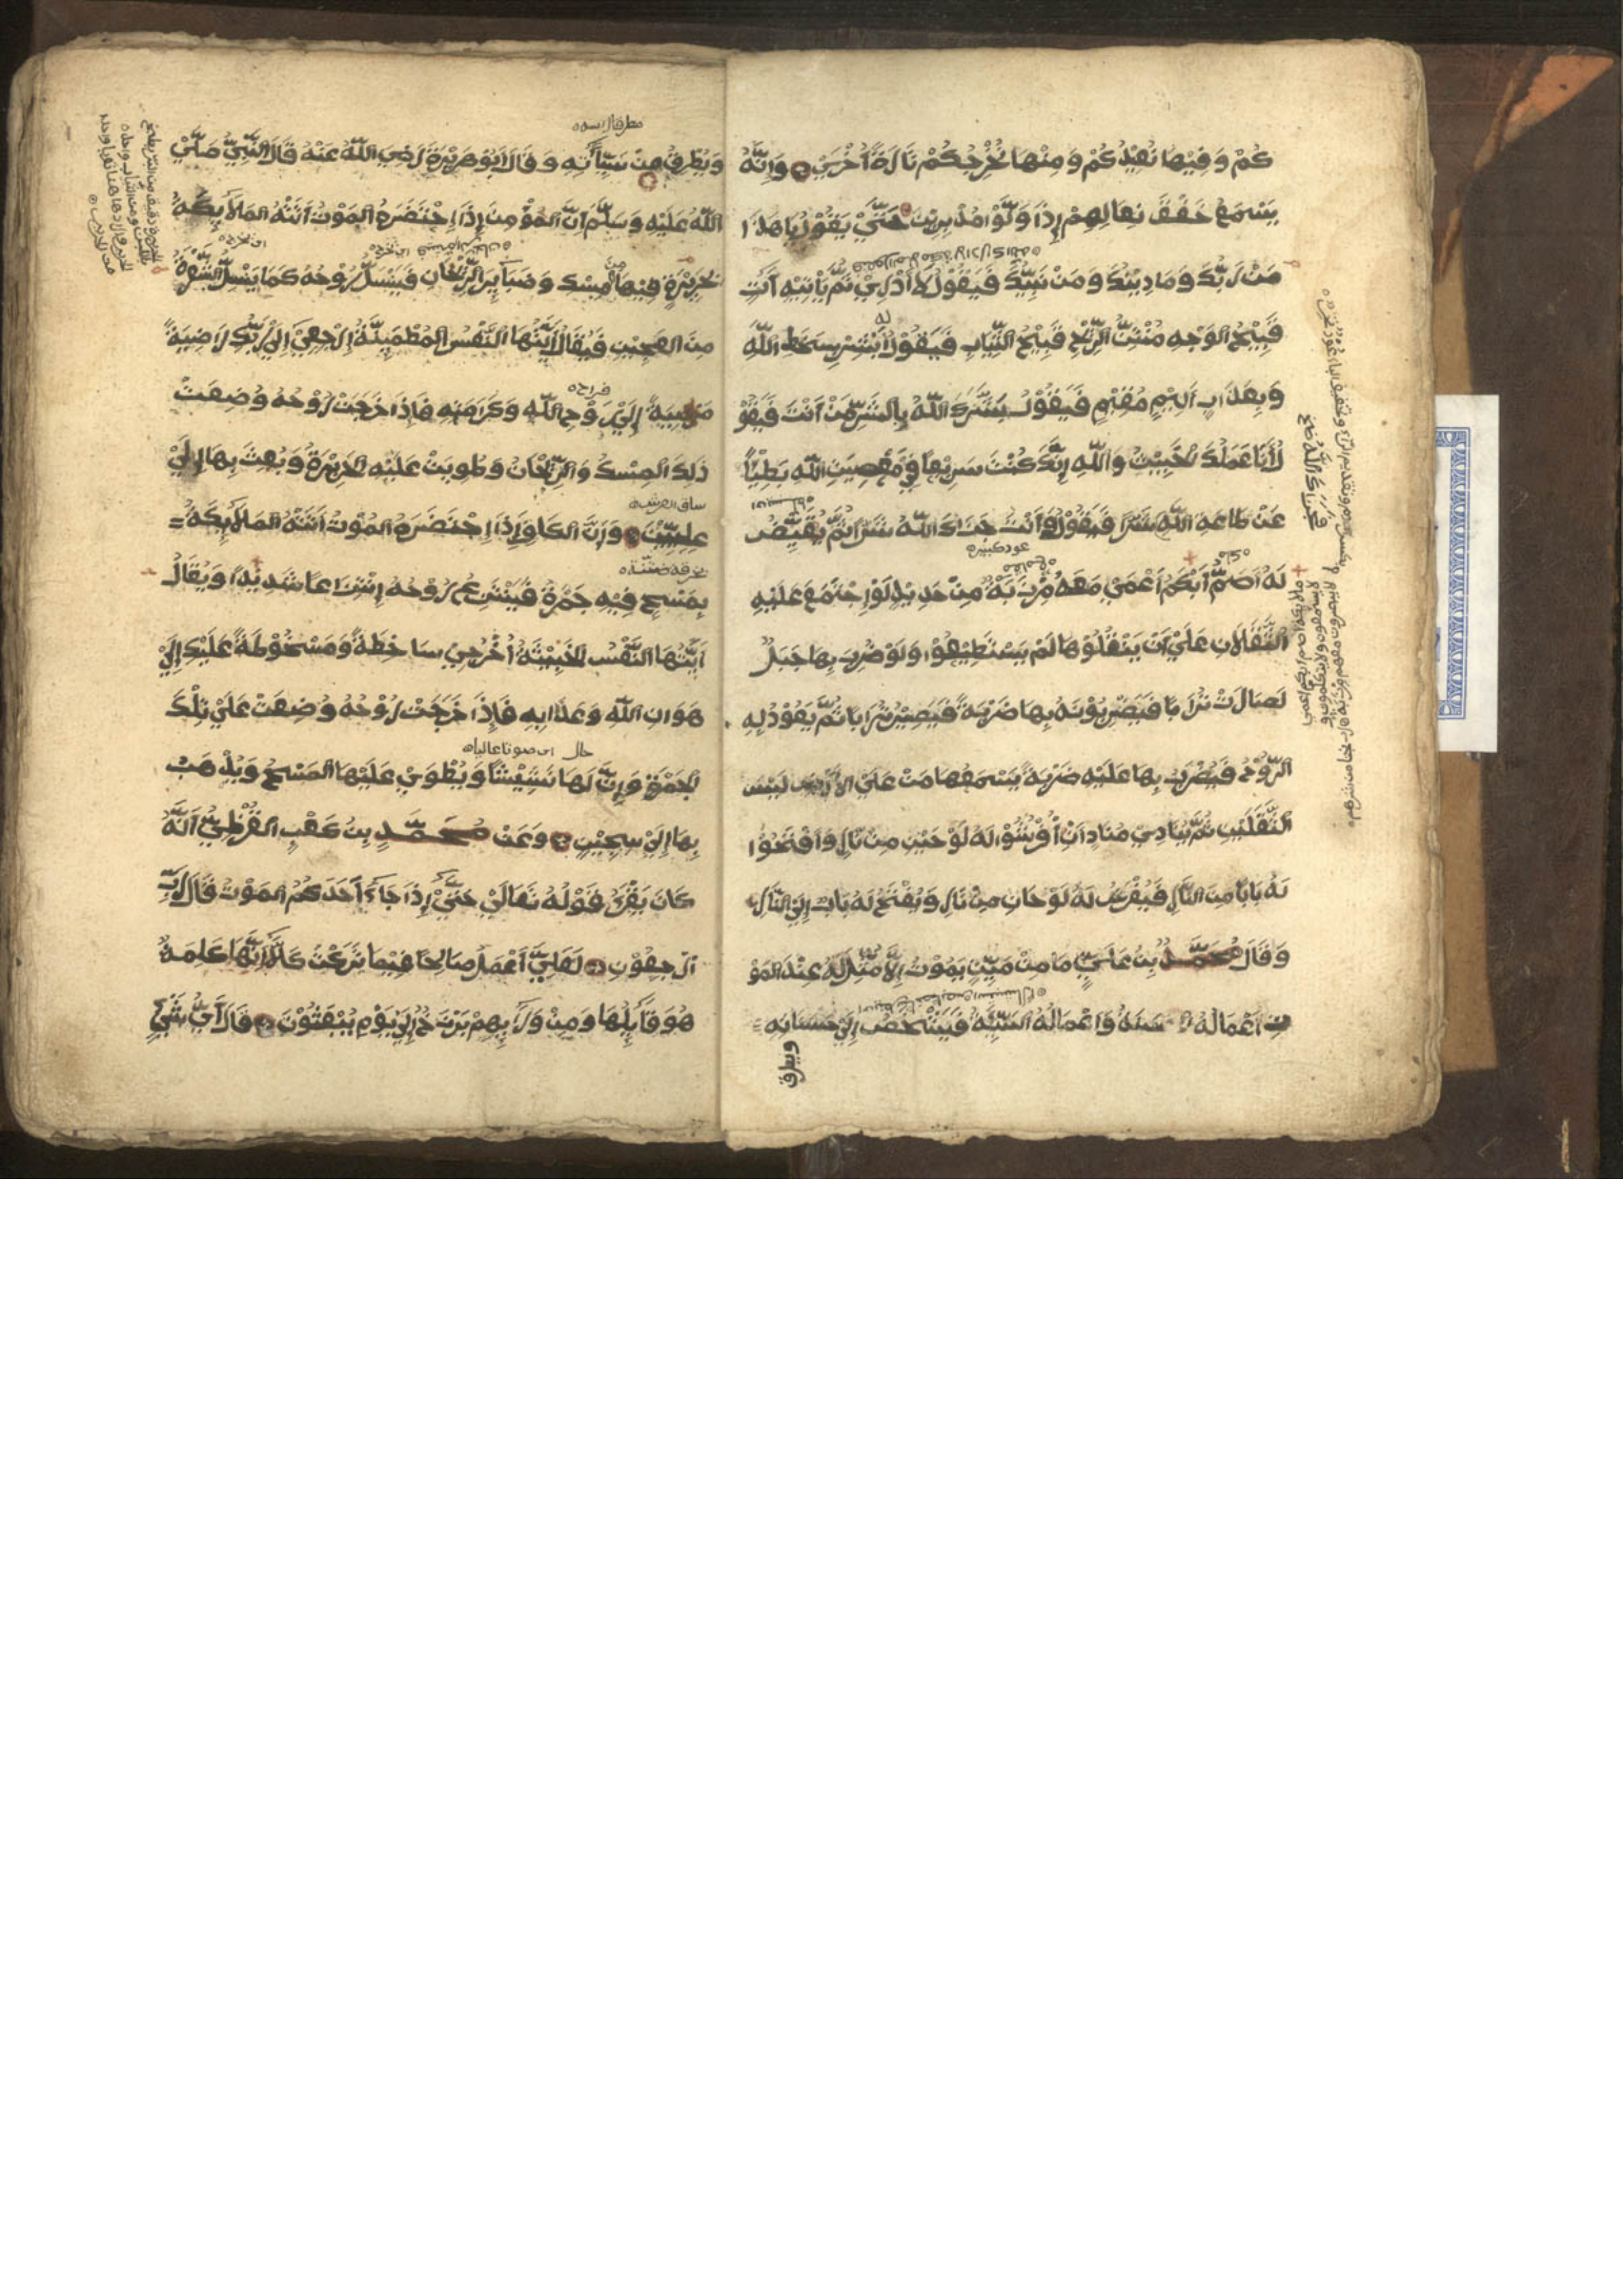 كُمْ وَفِيْهَا نُعِيْدُكُمْ وَمِنْهَا نُخْرِجُكُمْ تَارَةً أُخْرَيْ وَاِنَّهُ
يَسْمَعُ خَفْقَ نِعَالِهِمْ إِذَا وَلَّوْا مُدْبِرِيْنَ حَتَّيْ يَقُوْلُ يَا هٰذَا
مَنْ رَبُّكَ وَمَا دِيْنُكَ وَمَنْ نَبِيُّكَ فَيَقُوْلُ لَا أَدْرِيْ ثُمَّ يَأْتِيْهِ اٰتٍ
قَبِيْحُ الْوَجْهِ مُنْتِنُ الرِّيْحِ قَبِيْحُ الثِّيَابِ فَيَقُوْلُ أَبْشِرْ بِسَخَطِ اللّٰهِ
وَبِعَذَابٍ اَلِيْمٍ مُقِيْمٍ فَيَقُوْلُ بَشَّرَكَ اللّٰهُ بِالشَّرِّ مَنْ اَنْتَ فَيَقُوْ
لُ أَنَا عَمَلُكَ الْخَبِيْثُ وَاللّٰهِ إِنَّكَ كُنْتَ سَرِيْعًا فِيْ مَعْصِيَةِ اللّٰهِ بَطِيْأً
عَنْ طَاعَةِ اللّٰهِ شَرًّا فَيَقُوْلُ وَأَنْتَ جَزَاكَ اللّٰهُ شَرًّا ثُمَّ يُقَيَّضُ
لَهُ أَصَمُّ أَبْكَمُ أَعْمَيْ مَعَهُ مِرْزَبَّةٌ مِنْ حَدِيْدٍ لَوْ اِجْتَمَعَ عَلَيْهِ
الثَّقَلَانِ عَلَيْ اَنْ يَنْقُلُوْهَا لَمْ يَسْتَطِيْعُوْا وَلَوْ ضُرِبَ بِهَا جَبَلٌ
لَصَارَتْ تُرَابًا فَيَضْرِبُوْنَهُ بِهَا ضَرْبَةً فَيَصِيْرُ تُرَابًا ثُمَّ يَعُوْدُ لِهِ
الرُّوْحُ فَيُضْرَبُ بِهَا عَلَيْهِ ضَرْبَةً يَسْمَعُهَا مَنْ عَلَيْ الْأَرْضِ لَيْسَ
الثَّقَلَيْنِ ثُمَّ يُنَادِيْ مُنَادٍ اَنْ أَفْرِشُوْا لَهُ لَوْحَيْنِ مِنْ نَارٍ وَافْتَحُوْا
لَهُ بَابًا مِنَ النَّارِ فَيُفْرَشُ لَهُ لَوْحَانِ مِنْ نَارٍ وَيُفْتَحُ لَهُ بَابٌ إِلَيْ النَّارِ
وَقَالَ مُحَمَّدُ بْنُ عَلِيٍّ مَا مِنْ مَيِّتٍ يَمُوْتُ إِلَّا مُثِّلَ لَهُ عِنْدَ الْمَوْ
تِ أَعْمَالُهُ الْحَسَنَةُ وَاَعْمَالُهُ السَّيِّئَةُ فَيَشْخَصُ إِلَيْ حَسَنَاتِهِ
ويطرق
وَيُطْرِقُ مِنْ سَيِّأٰتِهِ وَقَالَ أَبُوْ هُرَيْرَةَ رَضِيَ اللّٰهُ عَنْهُ قَالَ النَّبِيُّ صَلَّيْ
اللّٰهُ عَلَيْهِ وَسَلَّمَ اَنَّ الْمُؤْمِنَ إِذَا اِحْتَضَرَهُ الْمَوْتُ أَتَتْهُ الْمَلَائِكَةُ
بِحَرِيْرَةٍ فِيْهَا مِسْكٌ وَضَبَائِرُ الرَّيْحَانِ فَيُسَلُّ رُوْحُهُ كَمَا يُسَلُّ الشَّعْرَةُ
مِنَ الْعَجِيْنِ فَيُقَالُ أَيَّتُهَا النَّفْسُ الْمُطْمَئِنَّةُ اِرْجِعِيْ إِلَيْ رَبِّكِ رَاضِيَةً
مَرْضِيَّةً إِلَيْ رَوْحِ اللّٰهِ وَكَرَامَتِهِ فَاِذَا خَرَجَتْ رُوْحُهُ وُضِعَتْ
ذٰلِكَ الْمِسْكُ وَالرَّيْحَانُ وَطُوِيَتْ عَلَيْهِ الْحَرِيْرَةُ وَبُعِثَ بِهَا إِلَيْ
عِلِّيِّيْنَ وَإِنَّ الْكَافِرَ إِذَا اِحْتَضَرَهُ الْمَوْتُ أَتَتْهُ الْمَلَائِكَةُ
بِمَسْحٍ فِيْهِ جَمْرَةٌ فَيُنْتَزَعُ رُوْحُهُ اِنْتِزَاعًا شَدِيْدًا وَيُقَالُ
أَيَّتُهَا النَّفْسُ الْخَبِيْثَةُ أُخْرُجِيْ سَاخِطَةً وَمَسْخُوْطَةً عَلَيْكِ إِلَيْ
هَوَانِ اللّٰهِ وَعَذَابِهِ فَإِذَا خَرَجَتْ رُوْحُهُ وُضِعَتْ عَلَيْ تِلْكَ
الْجَمْرَةِ وَإِنَّ لَهَا نَشِيْشًا وَيُطْوَيْ عَلَيْهَا الْمَسْحُ وَيُذْهَبُ
بِهَا إِلَيْ سِجِّيْنٍ وَعَنْ مُحَمَّدِ بْنِ كَعْبٍ الْقُرَظِيِّ أَنَّهُ
كَانَ يَقْرَءُ قَوْلَهُ تَعَالَيْ حَتَّيْ إِذَا جَاءَ أَحَدَكُمُ الْمَوْتُ قَالَ رَبِّ
ارْجِعُوْنِ لَعَلِّيْ أَعْمَلُ صَالِحًا فِيْمَا تَرَكْتُ كَلَّا إِنَّهَا كَلِمَةٌ
هُوَ قَائِلُهَا وَمِنْ وَرَائِهِمْ بَرْزَخٌ إِلَيْ يَوْمِ يُبْعَثُوْنَ قَالَ أَيُّ شَيْءٍ